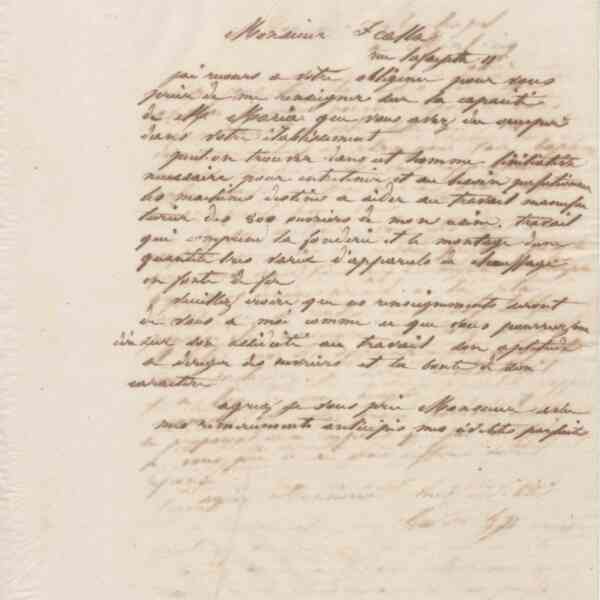 Monsieur Scalla
rue Lafayette 11
jai recours a votre obligeance pour vous
prier de me renseigner sur la capacité
de Mr Maria que vous avez eu occuper
dans votre établissement
peut on trouver dans cet homme linitiative
necessaire pour entretenir et au besoin perfectionner
les machines destiné a aider au travail manufac
turier des 800 ouvriers de mon usine. travail
qui comprend la fonderie et le montage dune
quantité tres varié d'appareils de chauffage
en fonte de fer
veuillez croire que ces renseignements seront
de vous a moi comme ce que vous pourrez men
dire sur son au travail son aptitude
a diriger des ouvriers et la bonté de son
caractère
agréez je vous prie Monsieur avec
mes remerciements anticipés mes civilités parfaites